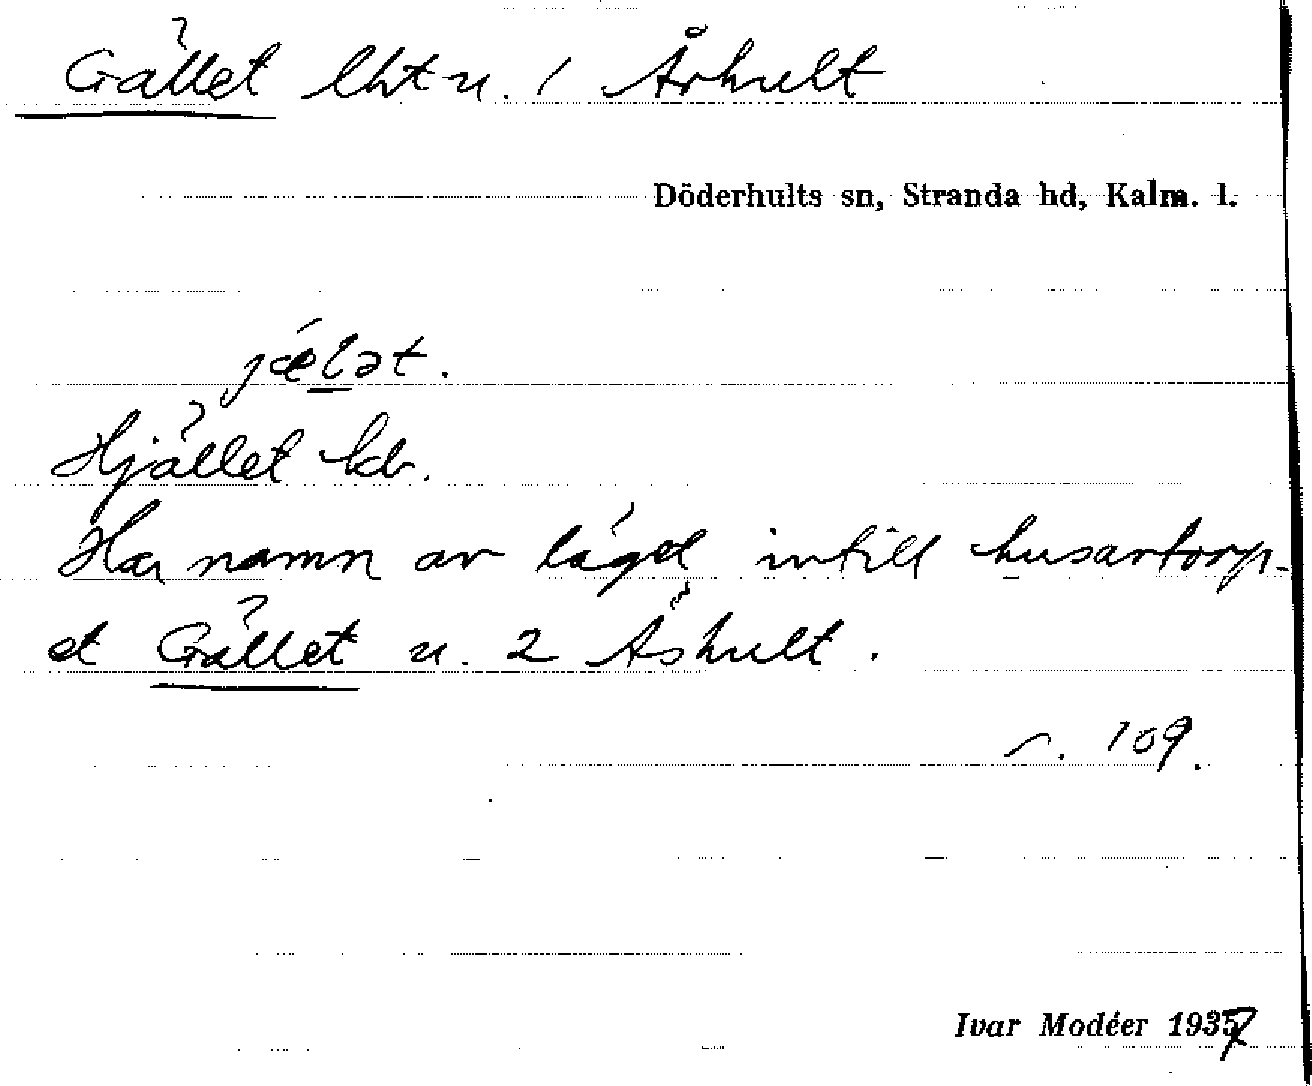 Gället lht u. 1 Århult
Döderhults sn, Stranda hd, Kalm. l.
jǽlət.
Hjället kb.
Har namn av läget intill husartorp-
et Gället u. 2 Åshult.
s. 109.
Ivar Modéer 1937